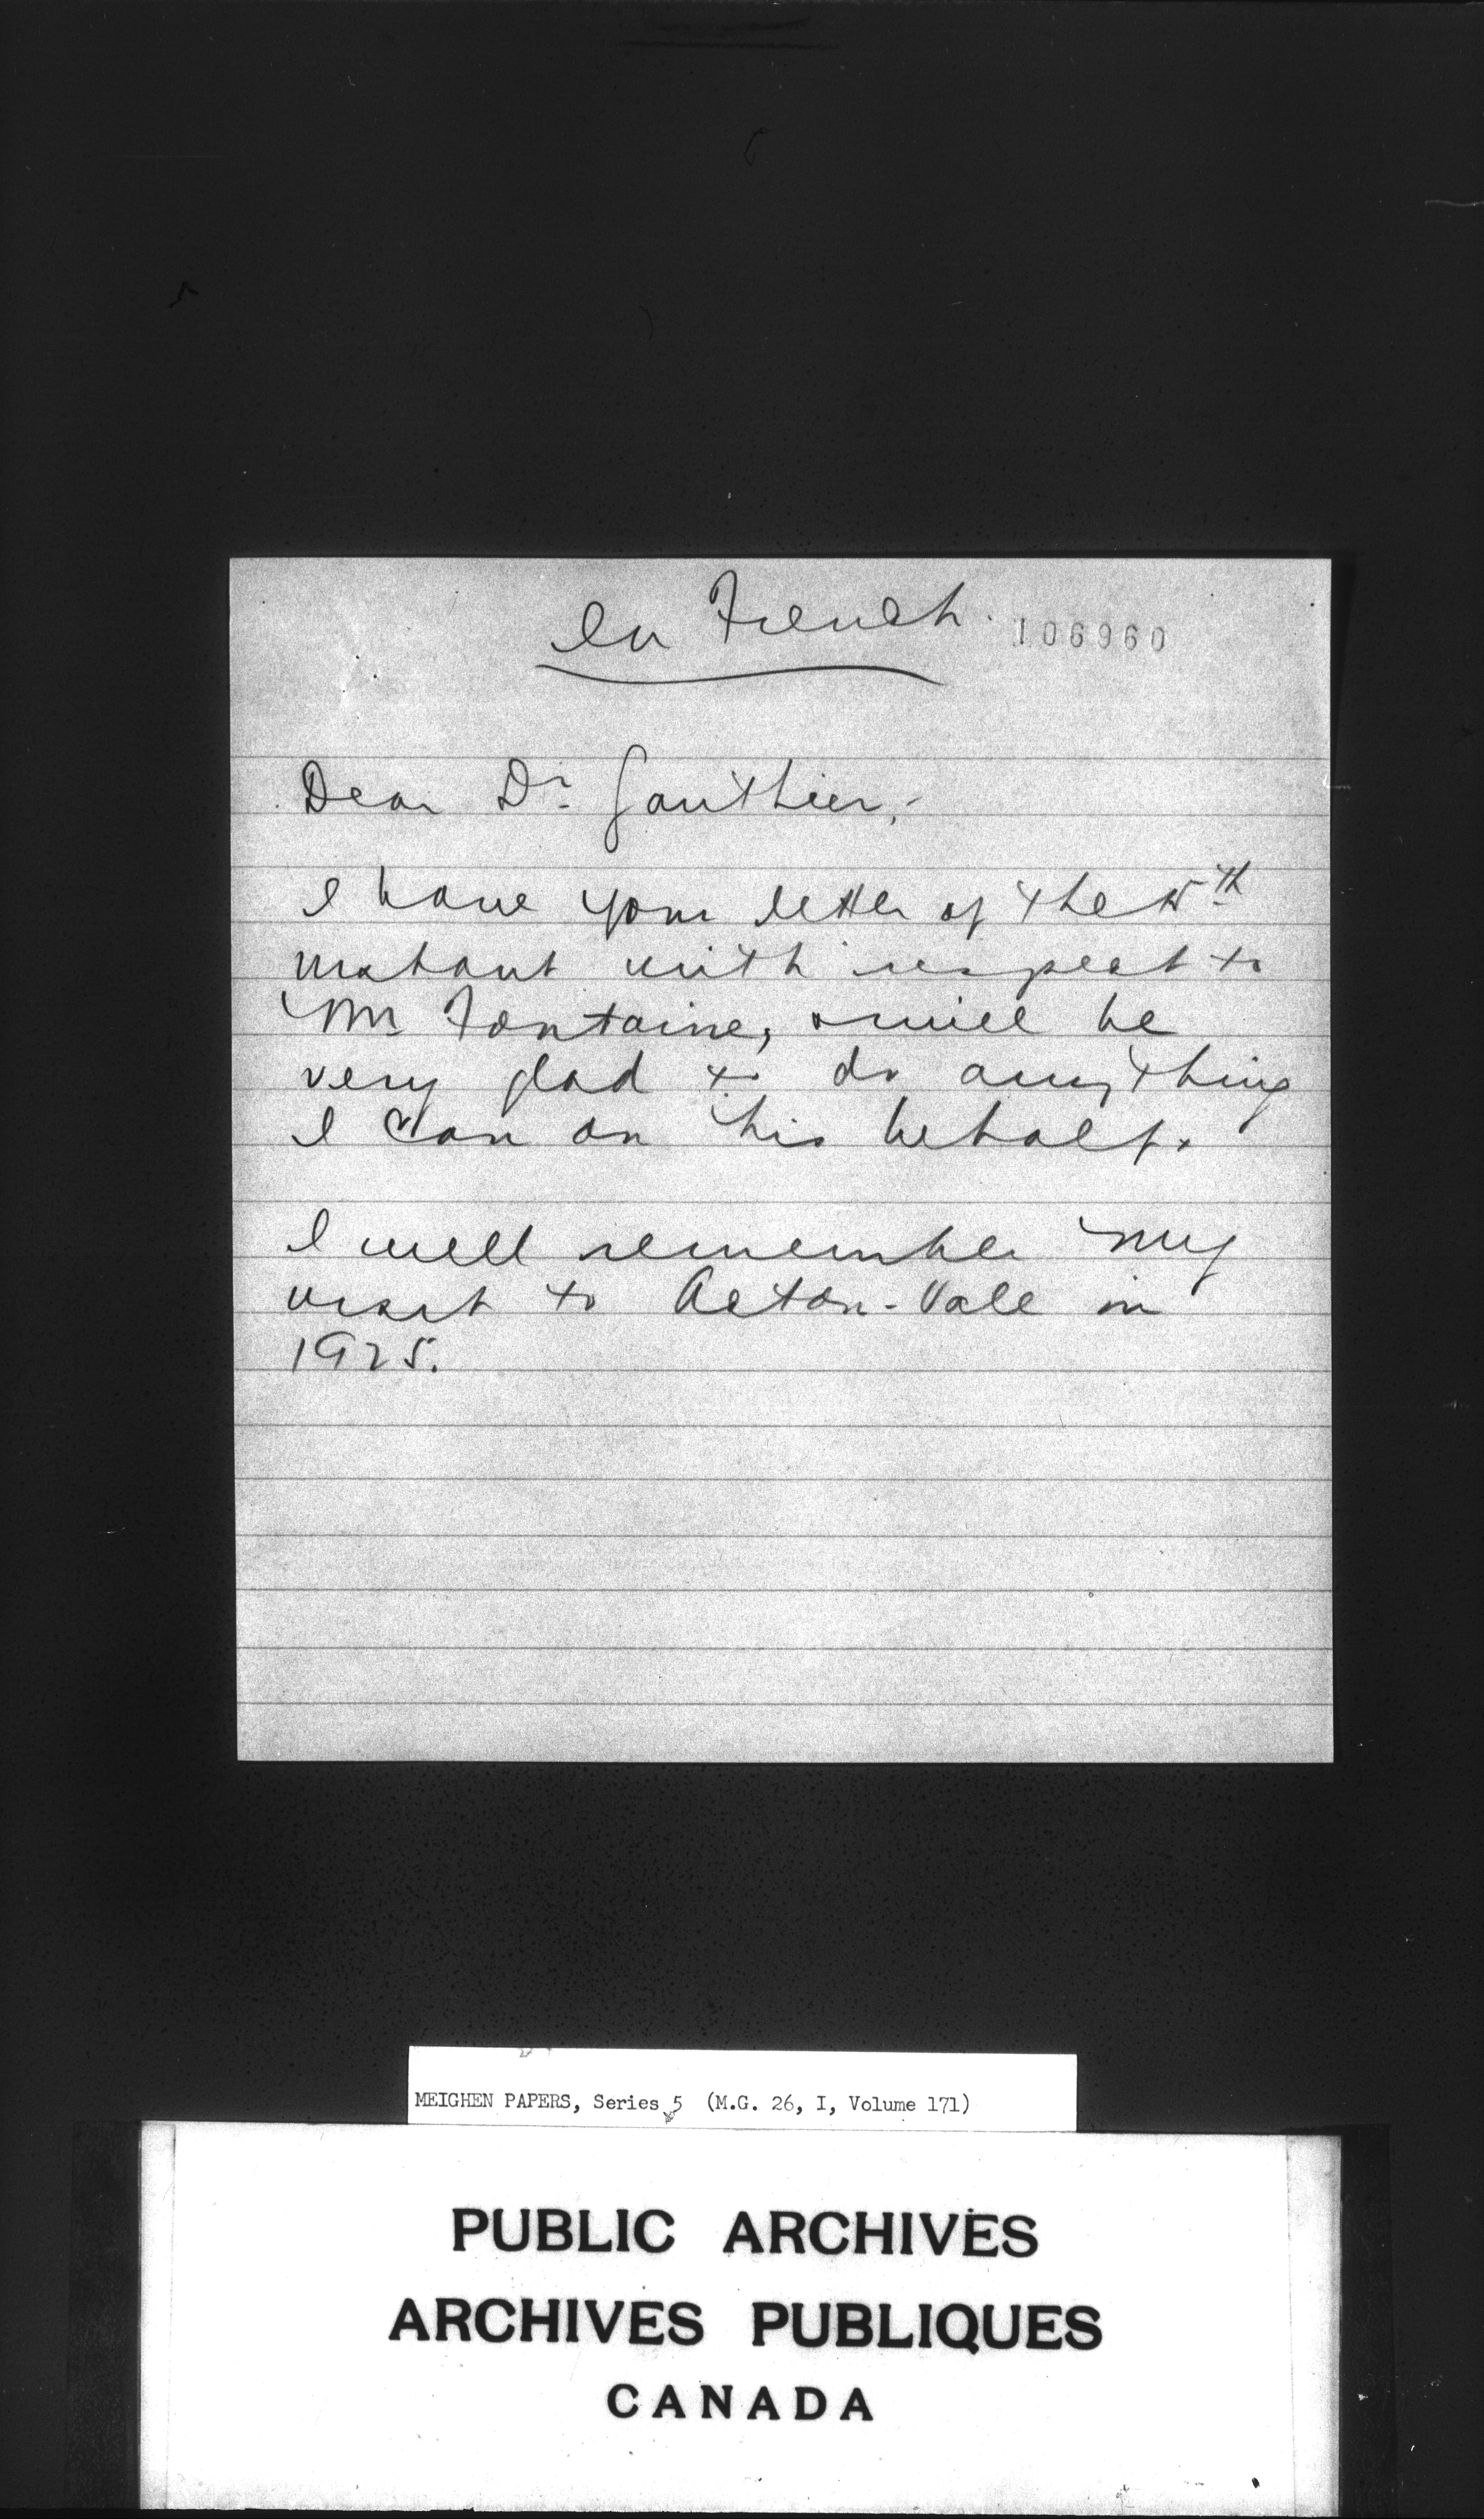 In French.
106960
Dear Dr. Gauthier,-
I have your letter of the 5th
instant with respect to
Mr Fontaine, & will be
very glad to do anything
I can on his behalf.
I well remember my
visit to Acton-Vale in
1925.
MEIGHEN PAPERS, Series 5 (M.G. 26, I, Volume 171)
PUBLIC ARCHIVES
ARCHIVES PUBLIQUES
CANADA